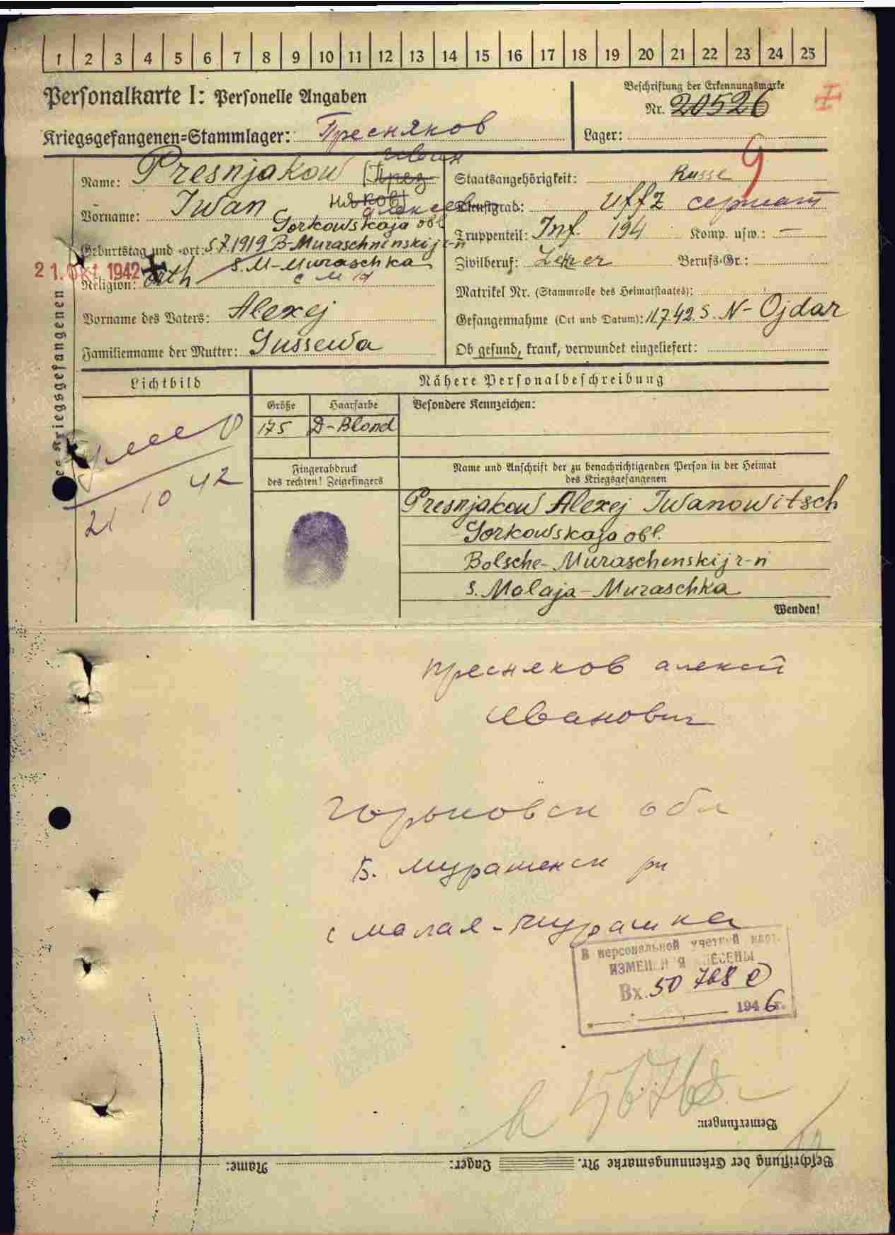 1 2 3 4 5 6 7 8 9 10 11 12 13 14 15 16 17 18 19 20 21 22 23 24 25
Personalkarte I: Personelle Angaben
Beschriftung der Erkennungsmarke
Nr. 20526
Kriegsgefangenen-Stammlager: Пресняков
Lager:
Иван
Name: Presnjakow
Staatsangehörigkeit: Russe
9
Vorname: Iwan
Алексеев
Dienstgrad: Uffz сержант
Gorkowskaja obl
Truppenteil: Inf. 194 Komp. usw.: —
Geburtstag und -ort: 5.7.1919 B-Muraschnenskij r-n
s. M-Muraschka
Zivilberuf: Lehrer Berufs-Gr.:
21. Okt. 1942
Religion: orth
Matrikel Nr. (Stammrolle des Heimatstaates):
Vorname des Vaters: Alexej
Gefangennahme (Ort und Datum): 11.7.42. s. N-Ojdar
Familienname der Mutter: Gussewa
Ob gesund, krank, verwundet eingeliefert:
Kriegsgefangenen
Lichtbild
Nähere Personalbeschreibung
Größe Haarfarbe Besondere Kennzeichen:
175 D-Blond
21 10 42
Fingerabdruck
des rechten! Zeigefingers
Name und Anschrift der zu benachrichtigenden Person in der Heimat
des Kriegsgefangenen
Presnjakow Alexej Iwanowitsch
Gorkowskaja obl.
Bolsche-Muraschenskij r-n
s. Molaja-Muraschka
Wenden!
Пресняков алексей
Иванович
Горьковск обл
Б. Мурашенск рн
с малая-Мурашка
В персональной учетной карт.
ИЗМЕНЕНИЯ ВНЕСЕНЫ
Вх. 50708
1946 г.
Bemerkungen:
Beschriftung der Erkennungsmarke Nr. Lager: Name: